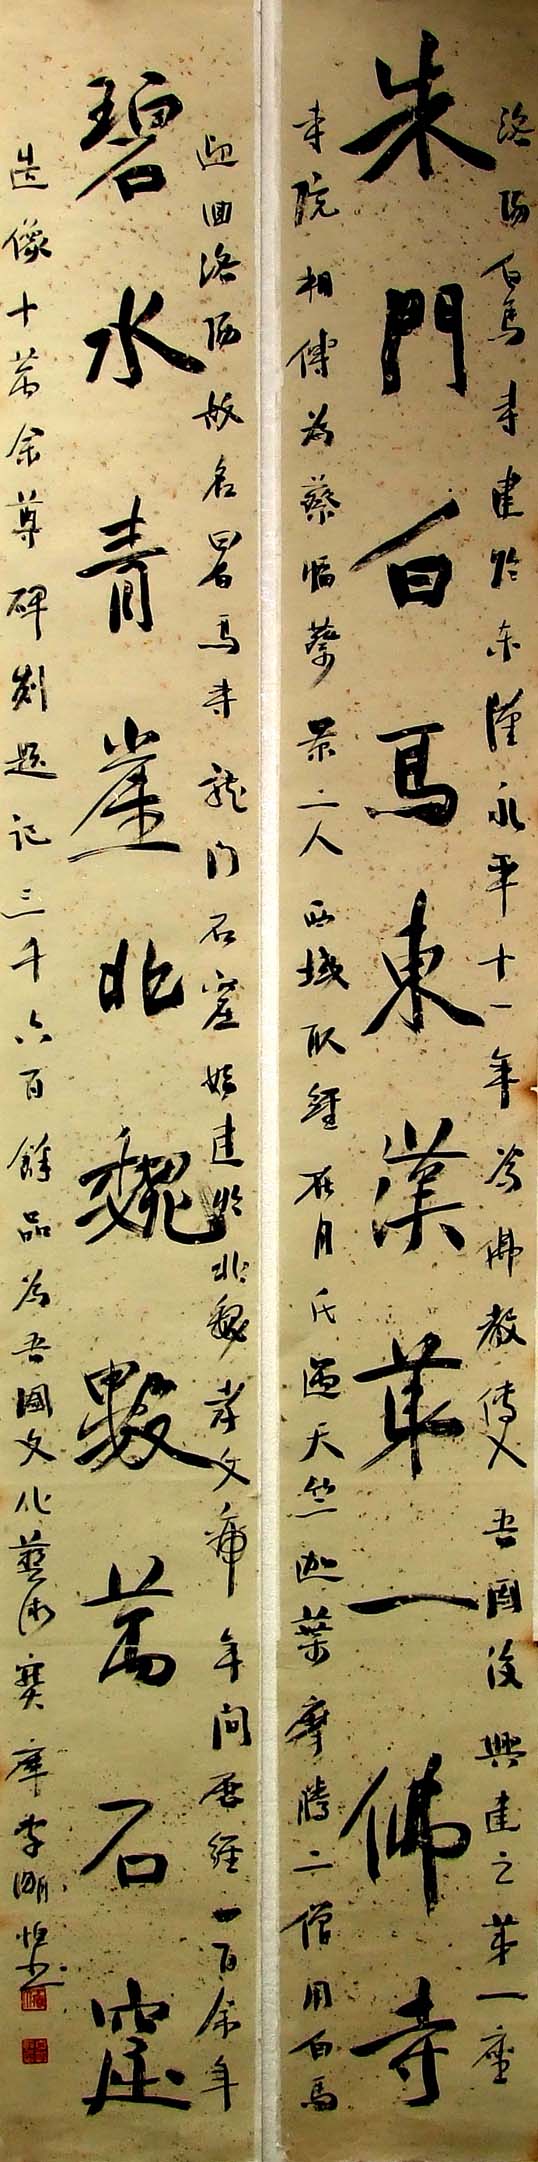 洛陽白馬寺建於東漢永平十一年為佛教傳入吾國後興建之第一座
朱門白馬東漢第一佛寺
寺院相傳為蔡愔蔡景二人西域取經在月氏遇天竺迦葉摩騰二僧用白馬
迎回洛陽故名曰白馬寺龍门石窟始建於北魏孝文帝年间歷經一百余年
碧水青崖北魏數萬石窟
造像十萬余尊碑刻題記三千六百餘品為吾國文化藝術寶庫李